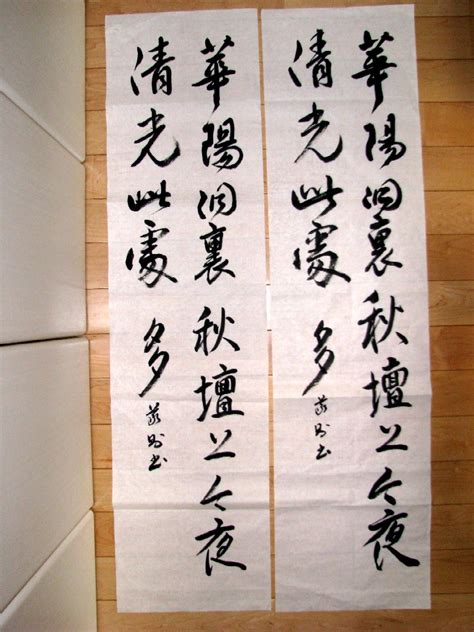 華陽洞裏秋壇上今夜
清光此處多
書
華陽洞裏秋壇上今夜
清光此處多
書